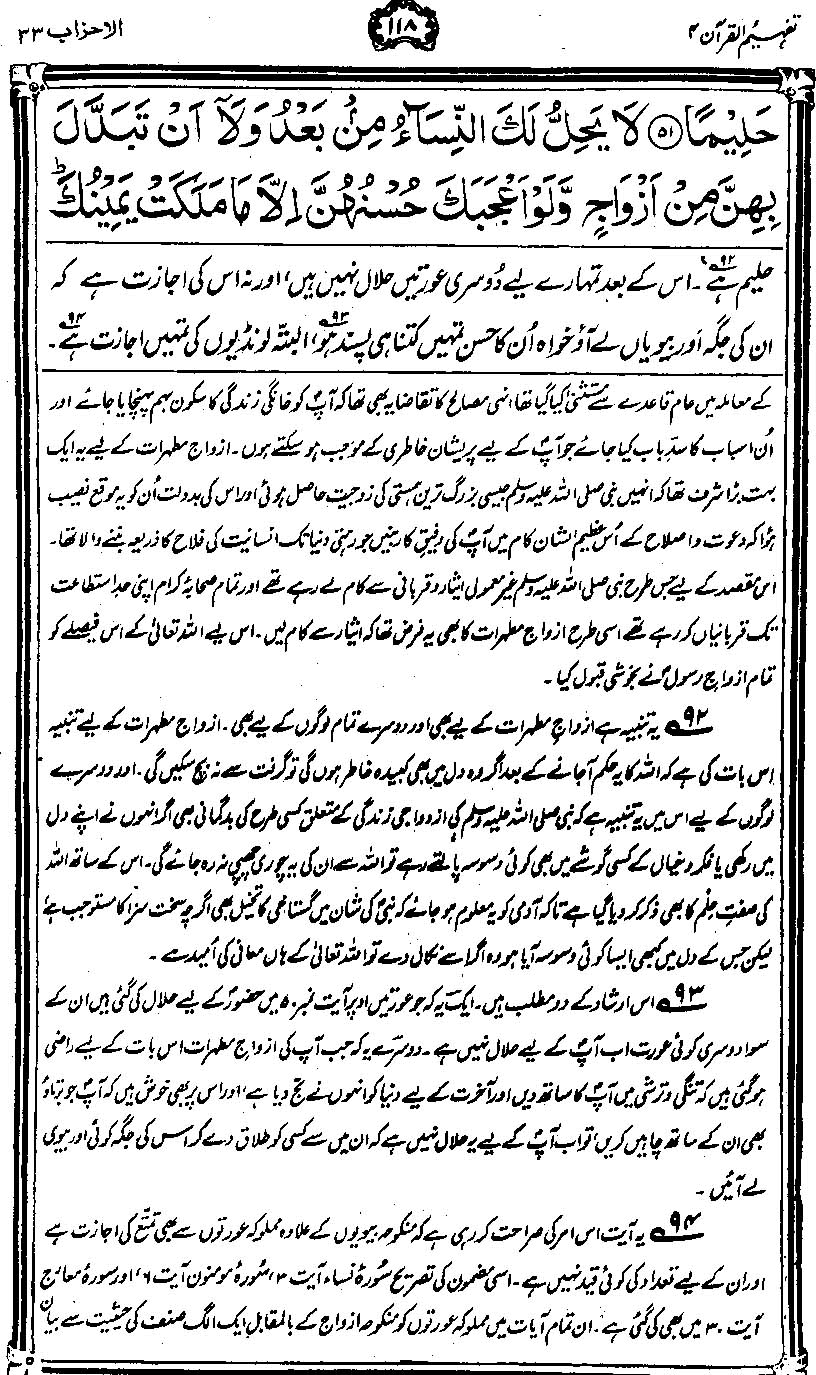 تفہیم القرآن ۴
۱۱۸
الاحزاب ۳۳
حَلِيْمًا ﴿۵۱﴾ لَا يَحِلُّ لَكَ النِّسَآءُ مِنْۢ بَعْدُ وَلَآ اَنْ تَبَدَّلَ
بِهِنَّ مِنْ اَزْوَاجٍ وَّلَوْ اَعْجَبَكَ حُسْنُهُنَّ اِلَّا مَا مَلَكَتْ يَمِيْنُكَ ؕ
حلیم ہے۹۲۔ اس کے بعد تمہارے لیے دُوسری عورتیں حلال نہیں ہیں، اور نہ اس کی اجازت ہے کہ
ان کی جگہ اور بیویاں لے آؤ خواہ اُن کا حسن تمہیں کتنا ہی پسند ہو۹۳، البتہ لونڈیوں کی تمہیں اجازت ہے۹۴۔
کے معاملہ میں عام قاعدے سے مستثنیٰ کیا گیا تھا، انہی مصالح کا تقاضا یہ بھی تھا کہ آپؐ کو خانگی زندگی کا سکون بہم پہنچایا جائے اور
اُن اسباب کا سدِّ باب کیا جائے جو آپؐ کے لیے پریشان خاطری کے موجب ہو سکتے ہوں۔ ازواجِ مطہرات کے لیے یہ ایک
بہت بڑا شرف تھا کہ انہیں نبی صلی اللہ علیہ وسلم جیسی بزرگ ترین ہستی کی زوجیت حاصل ہوئی اور اس کی بدولت اُن کو یہ موقع نصیب
ہوا کہ دعوت و اصلاح کے اُس عظیم الشان کام میں آپؐ کی رفیقِ کار بنیں جو رہتی دنیا تک انسانیت کی فلاح کا ذریعہ بننے والا تھا۔
اس مقصد کے لیے جس طرح نبی صلی اللہ علیہ وسلم غیر معمولی ایثار و قربانی سے کام لے رہے تھے اور تمام صحابۂ کرام اپنی حدِ استطاعت
تک قربانیاں کر رہے تھے اسی طرح ازواجِ مطہرات کا بھی یہ فرض تھا کہ ایثار سے کام لیں۔ اس لیے اللہ تعالیٰ کے اس فیصلے کو
تمام ازواجِ رسولؐ نے بخوشی قبول کیا۔
۹۲ یہ تنبیہ ہے ازواجِ مطہرات کے لیے بھی اور دوسرے تمام لوگوں کے لیے بھی۔ ازواجِ مطہرات کے لیے تنبیہ
اِس بات کی ہے کہ اللہ کا یہ حکم آجانے کے بعد اگر وہ دل میں بھی کبیدہ خاطر ہوں گی تو گرفت سے نہ بچ سکیں گی۔ اور دوسرے
لوگوں کے لیے اس میں یہ تنبیہ ہے کہ نبی صلی اللہ علیہ وسلم کی ازدواجی زندگی کے متعلق کسی طرح کی بدگمانی بھی اگر انہوں نے اپنے دل
میں رکھی یا فکر و خیال کے کسی گوشے میں بھی کوئی وسوسہ پالتے رہے تو اللہ سے ان کی یہ چوری چھپی نہ رہ جائے گی۔ اس کے ساتھ اللہ
کی صفتِ حلم کا بھی ذکر کر دیا گیا ہے تاکہ آدمی کو یہ معلوم ہو جائے کہ نبیؐ کی شان میں گستاخی کا تخیل بھی اگرچہ سخت سزا کا مستوجب ہے،
لیکن جس کے دل میں کبھی ایسا کوئی وسوسہ آیا ہو وہ اگر اسے نکال دے تو اللہ تعالیٰ کے ہاں معافی کی اُمید ہے۔
۹۳ اس ارشاد کے دو مطلب ہیں۔ ایک یہ کہ جو عورتیں اوپر آیت نمبر ۵۰ میں حضورؐ کے لیے حلال کی گئی ہیں ان کے
سوا دوسری کوئی عورت اب آپؐ کے لیے حلال نہیں ہے۔ دوسرے یہ کہ جب آپ کی ازواجِ مطہرات اس بات کے لیے راضی
ہو گئی ہیں کہ تنگی و ترشی میں آپؐ کا ساتھ دیں اور آخرت کے لیے دنیا کو انہوں نے تج دیا ہے، اور اس پر بھی خوش ہیں کہ آپؐ جو برتاؤ
بھی ان کے ساتھ چاہیں کریں، تو اب آپؐ کے لیے یہ حلال نہیں ہے کہ ان میں سے کسی کو طلاق دے کر اس کی جگہ کوئی اور بیوی
لے آئیں۔
۹۴ یہ آیت اس امر کی صراحت کر رہی ہے کہ منکوحہ بیویوں کے علاوہ مملوکہ عورتوں سے بھی تمتّع کی اجازت ہے
اور ان کے لیے تعداد کی کوئی قید نہیں ہے۔ اسی مضمون کی تصریح سُورۂ نساء آیت ۳، سُورۂ مومنون آیت ۶، اور سورۂ معارج
آیت ۳۰ میں بھی کی گئی ہے۔ ان تمام آیات میں مملوکہ عورتوں کو منکوحہ ازواج کے بالمقابل ایک الگ صنف کی حیثیت سے بیان